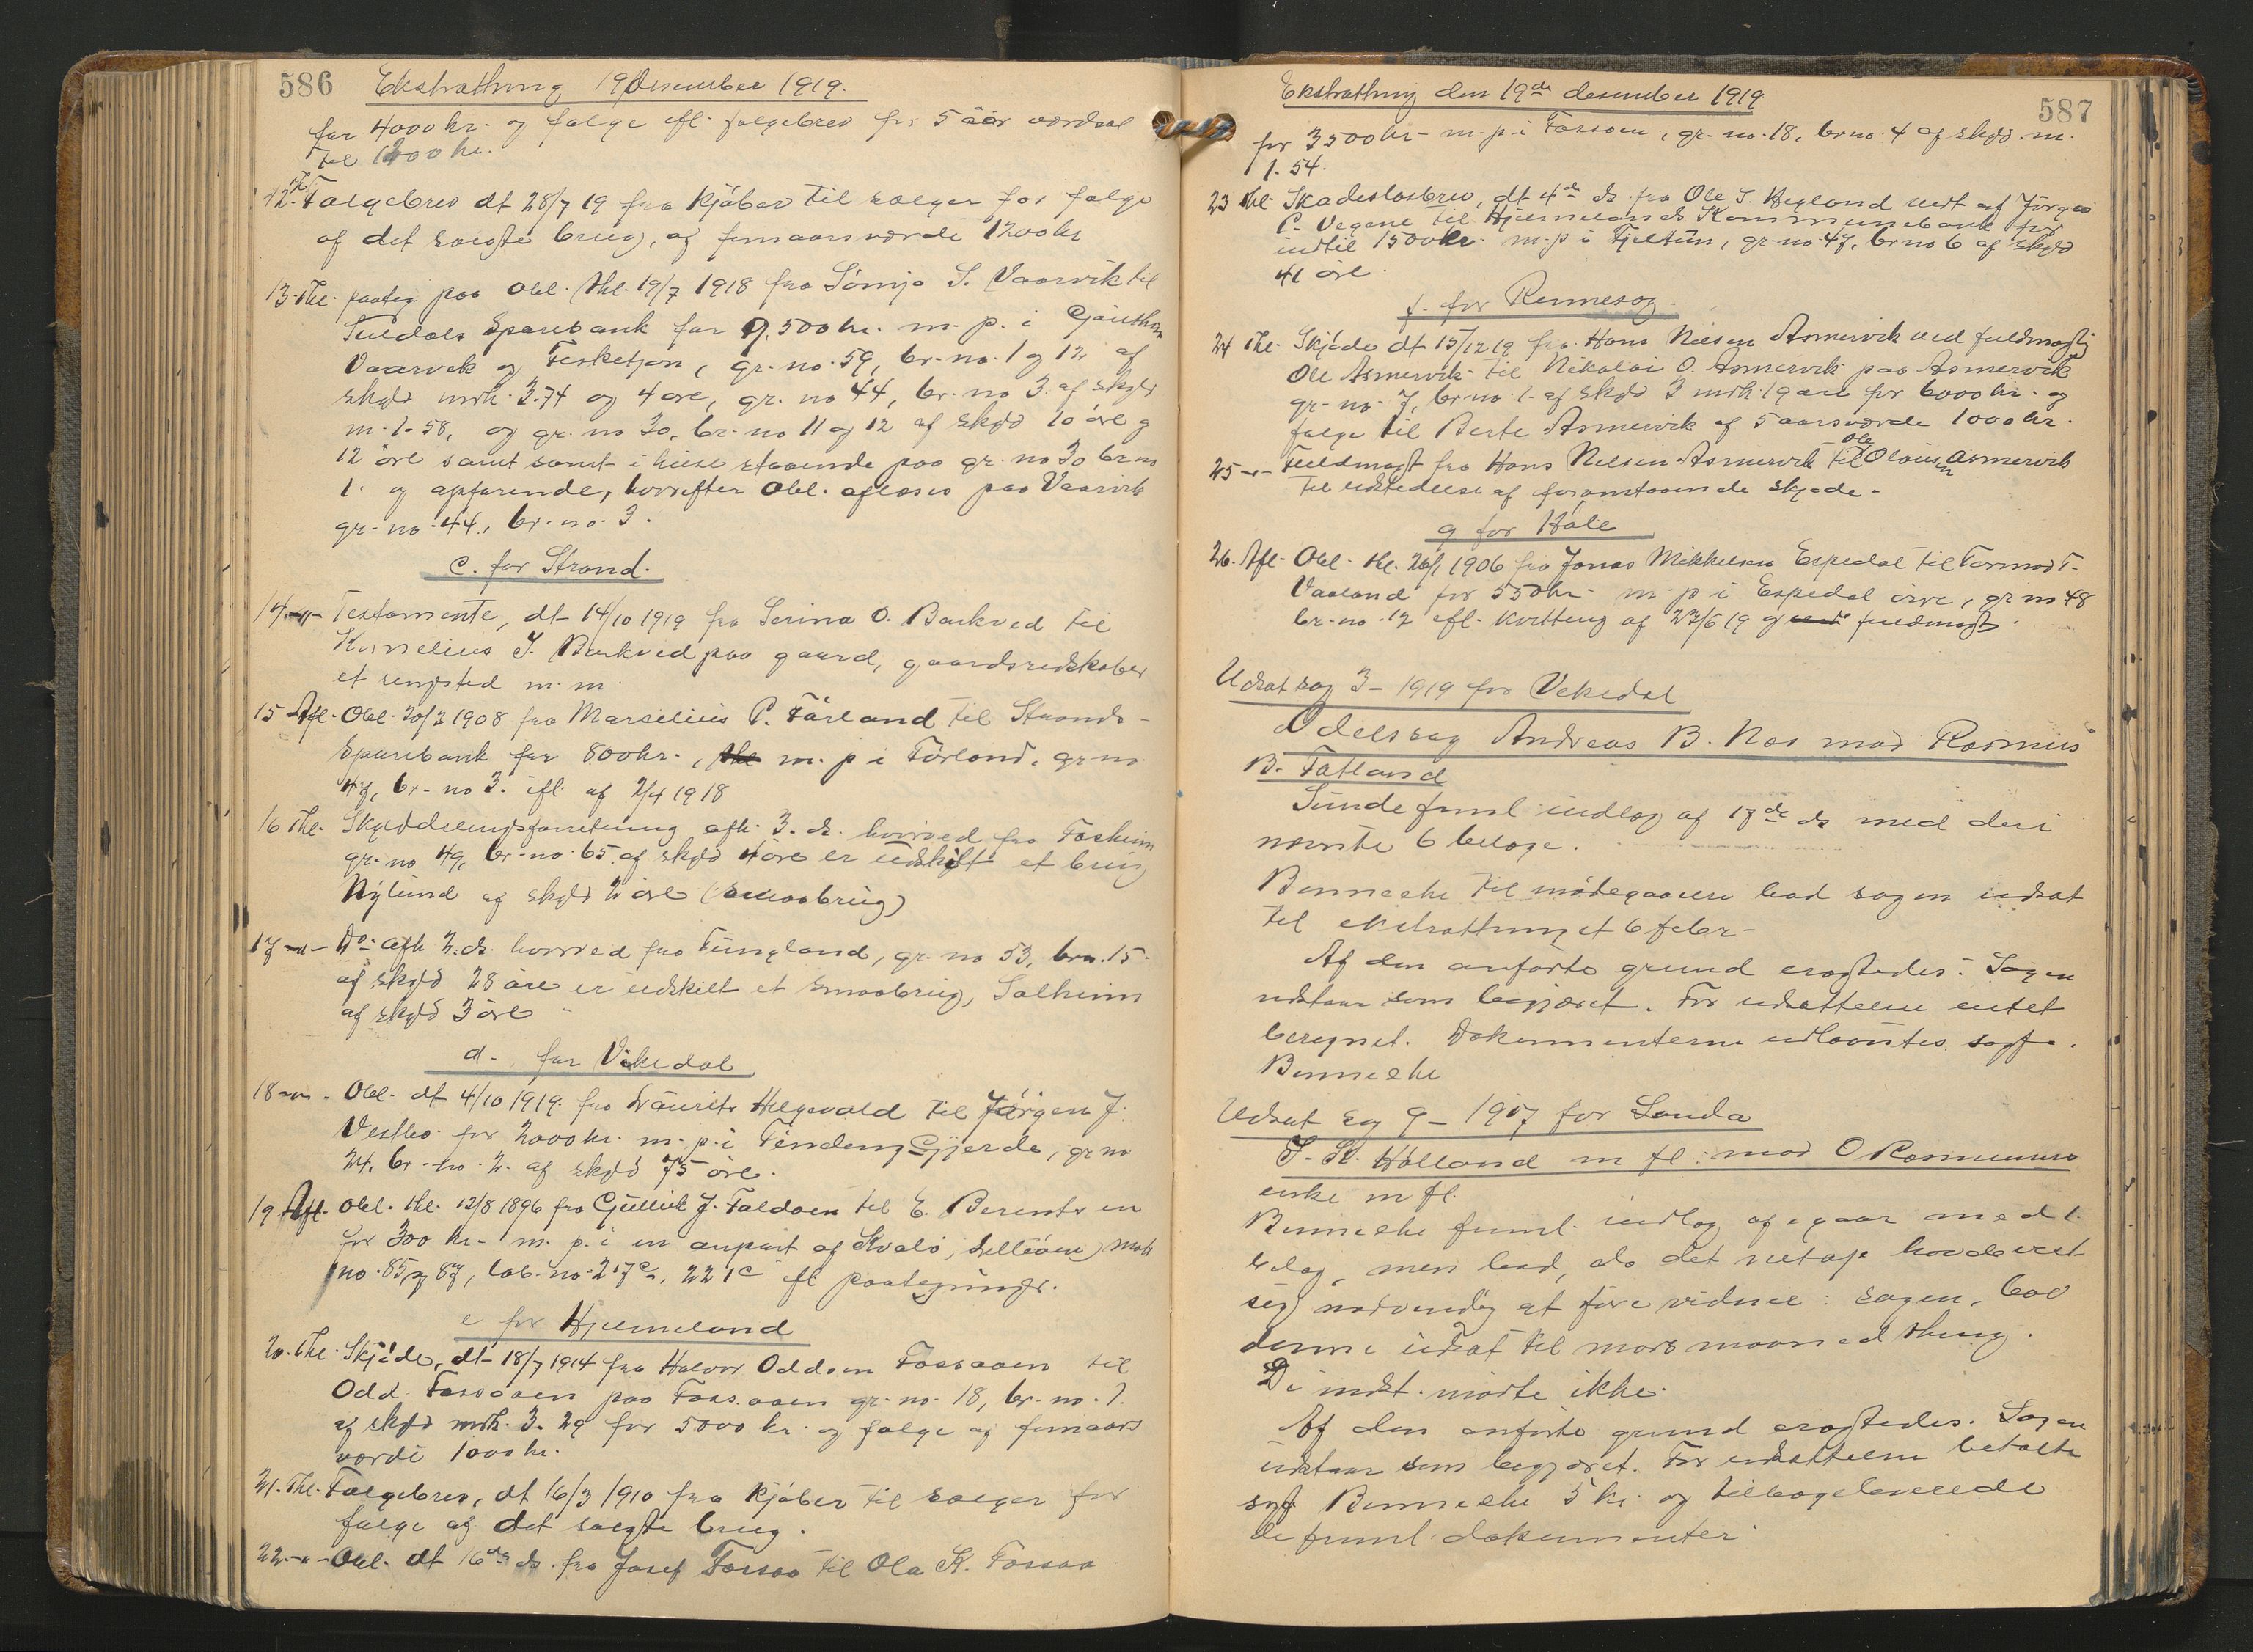 586 Ekstrathing 19 desember 1919.
for 4000 kr. og følge efl. følgebrev for 5 aar værdsat
til 1200 kr.
12. Th. Følgebrev dt 28/7 19 fra kjøber til sælger for følge
af det solgte brug, af femaarsværdi 1200 kr
13. Thl. paateg. paa Obl. thl. 19/7 1918 fra S. Vaarvik til
Suldals Sparebank for 9,500 kr. m. p. i
Vaarvik og Fisketjøn, gr. no. 59, br. no. 1 og 12 af
skyld mrk. 3.74 og 4 øre, gr. no 44, br. no 3. af skyld
m. 1.58, og gr. no 30, br. no 11 og 12 af skyld 10 øre g
12 øre samt samt i huse staaende paa gr. no 30 br no
1. og opførende, hvorefter Obl. afløses paa Vaarvik
gr. no. 44, br. no. 3.
c. for Strand.
14 -"- Testamente, dt 14/10 1919 fra Serina O. Barkved til
Kornelius J. Barkved paa gaard, gaardsredskaber
et sengsted m. m.
15 Afl. Obl. 20/3 1908 fra Marselius P. Førland til Strands
Sparebank for 800 kr., thl m. p i Førland, gr no
47, br. no 3. ifl. af 2/4 1918
16 Thl. Skylddelingsforretning afh. 3. ds. hvorved fra Fosheim
gr. no 49, br. no 65 af skyld 4 øre er udskilt et brug
Nylund af skyld 2 øre (smaabrug)
17 -"- Do. afh 2. ds. hvorved fra Tungland, gr. no 53, brn. 15.
af skyld 28 øre er udskilt et smaabrug, Solheim
af skyld 3 øre
d. for Vikedal
18 -"- Obl. dt 4/10 1919 fra Laurits Helgevold til Jørgen J.
Vestbo for 2000 kr. m. p. i Tindeng Gjerde, gr no
24, br. no. 2. af skyld 75 øre.
19 Afl. Obl. thl. 12/8 1896 fra Gullik J. Foldøen til E. Berentsen
for 300 kr. m. p. i en anpart af Kvalø, matr
no. 85 og 87, løb. no. 217c, 221c ifl paategninger.
e for Hjelmeland
20. Thl. Skjøde, dt 18/7 1914 fra Halvor Oddsen Fossaaen til
Odd Fossaaen paa Fossaaen gr. no. 18, br. no. 1.
af skyld mrk. 3.29 for 5000 kr. og følge af femaars
værdi 1000 kr.
21. Thl. Følgebrev, dt 16/3 1910 fra kjøber til sælger for
følge af det solgte brug.
22 -"- Obl. dt 16de ds. fra Josef Fossaa til Ola K. Fossaa
Ekstrathing den 19de desember 1919 587
for 3500 kr. m. p. i Fossaaen, gr. no. 18, br no. 4 af skyld m.
1.54.
23 Thl. Skadesløsbrev, dt 4de ds. fra Ole S. Hegland vedt. af Jørgen
P. Vegene til Hjelmelands Kommunebank for
indtil 1500 kr. m. p. i Fjeltun, gr. no. 47, br no 6 af skyld
41 øre.
f. for Rennesøy
24 Thl. Skjøde dt 15/12 19 fra Hans Nilsen Asmervik ved fuldmægtig
Ole Asmervik til Nikolai O. Asmervik paa Asmervik
gr. no. 7, br. no. 1. af skyld 3 mrk. 19 øre for 6000 kr. og
følge til Berte Asmervik af 5 aarsværde 1000 kr.
25 -"- Fuldmagt fra Hans Nilsen Asmervik til Ole Olausen Asmervik
til udstedelse af foranstaaende skjøde.
g for Høle
26. Afl. Obl. thl. 26/1 1906 fra Jonas Mikkelsen Espedal til Tormod T.
Vaaland for 550 kr. m. p i Espedal øvre, gr no 48
br. no. 12 efl. kvittering af 23/6 19 og fuldmagt.
Udsat sag 3 - 1919 for Vikedal
Odelssag Andreas B. Nes mod Rasmus
B. Fatland
Sunde freml indlæg af 17de ds med deri
nævnte 6 bilage.
Bennecke til mødegaaende bad sagen udsat
til ekstrathinget 6 febr.
Af den anførte grund eragtedes: Sagen
udstaar som begjæret. For udsættelsen intet
beregnet. Dokumenterne udlaantes sagf.
Bennecke
Udsat sag 9 - 1917 for Sauda
S. St. Hølland m fl: mod O Rasmussens
enke m fl.
Bennecke freml. indlæg af igaar med 1.
bilag, men bad, da det netop havde vist
sig nødvendig at føre vidner i sagen, bad
denne udsat til mars maaned thing.
De indst. mødte ikke.
Af den anførte grund eragtedes. Sagen
udstaar som begjæret. For udsættelsen betalte
sagf. Bennecke 5 kr. og tilbageleverede
de freml. dokumenter